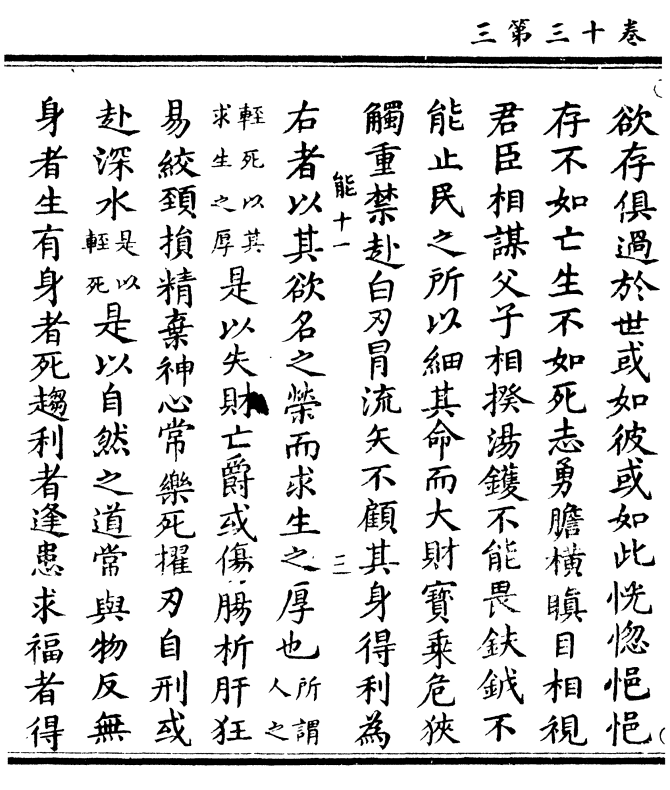 三第三十卷
欲存俱過於世或如彼或如此恍惚悒悒
存不如亡生不如死志勇膽橫瞋目相視
君臣相謀父子相揆湯鑊不能畏鈇鉞不
能止民之所以細其命而大財寶乘危狹
觸重禁赴白刃冐流矢不顧其身得利為
能十一
三
右者以其欲名之榮而求生之厚也所謂人之
輊死以其求生之厚是以失財亡爵或傷腸析肝狂
易絞頸損精棄神心常樂死擢刃自刑或
赴深水是以輊死是以自然之道常與物反無
身者生有身者死趨利者逢患求福者得